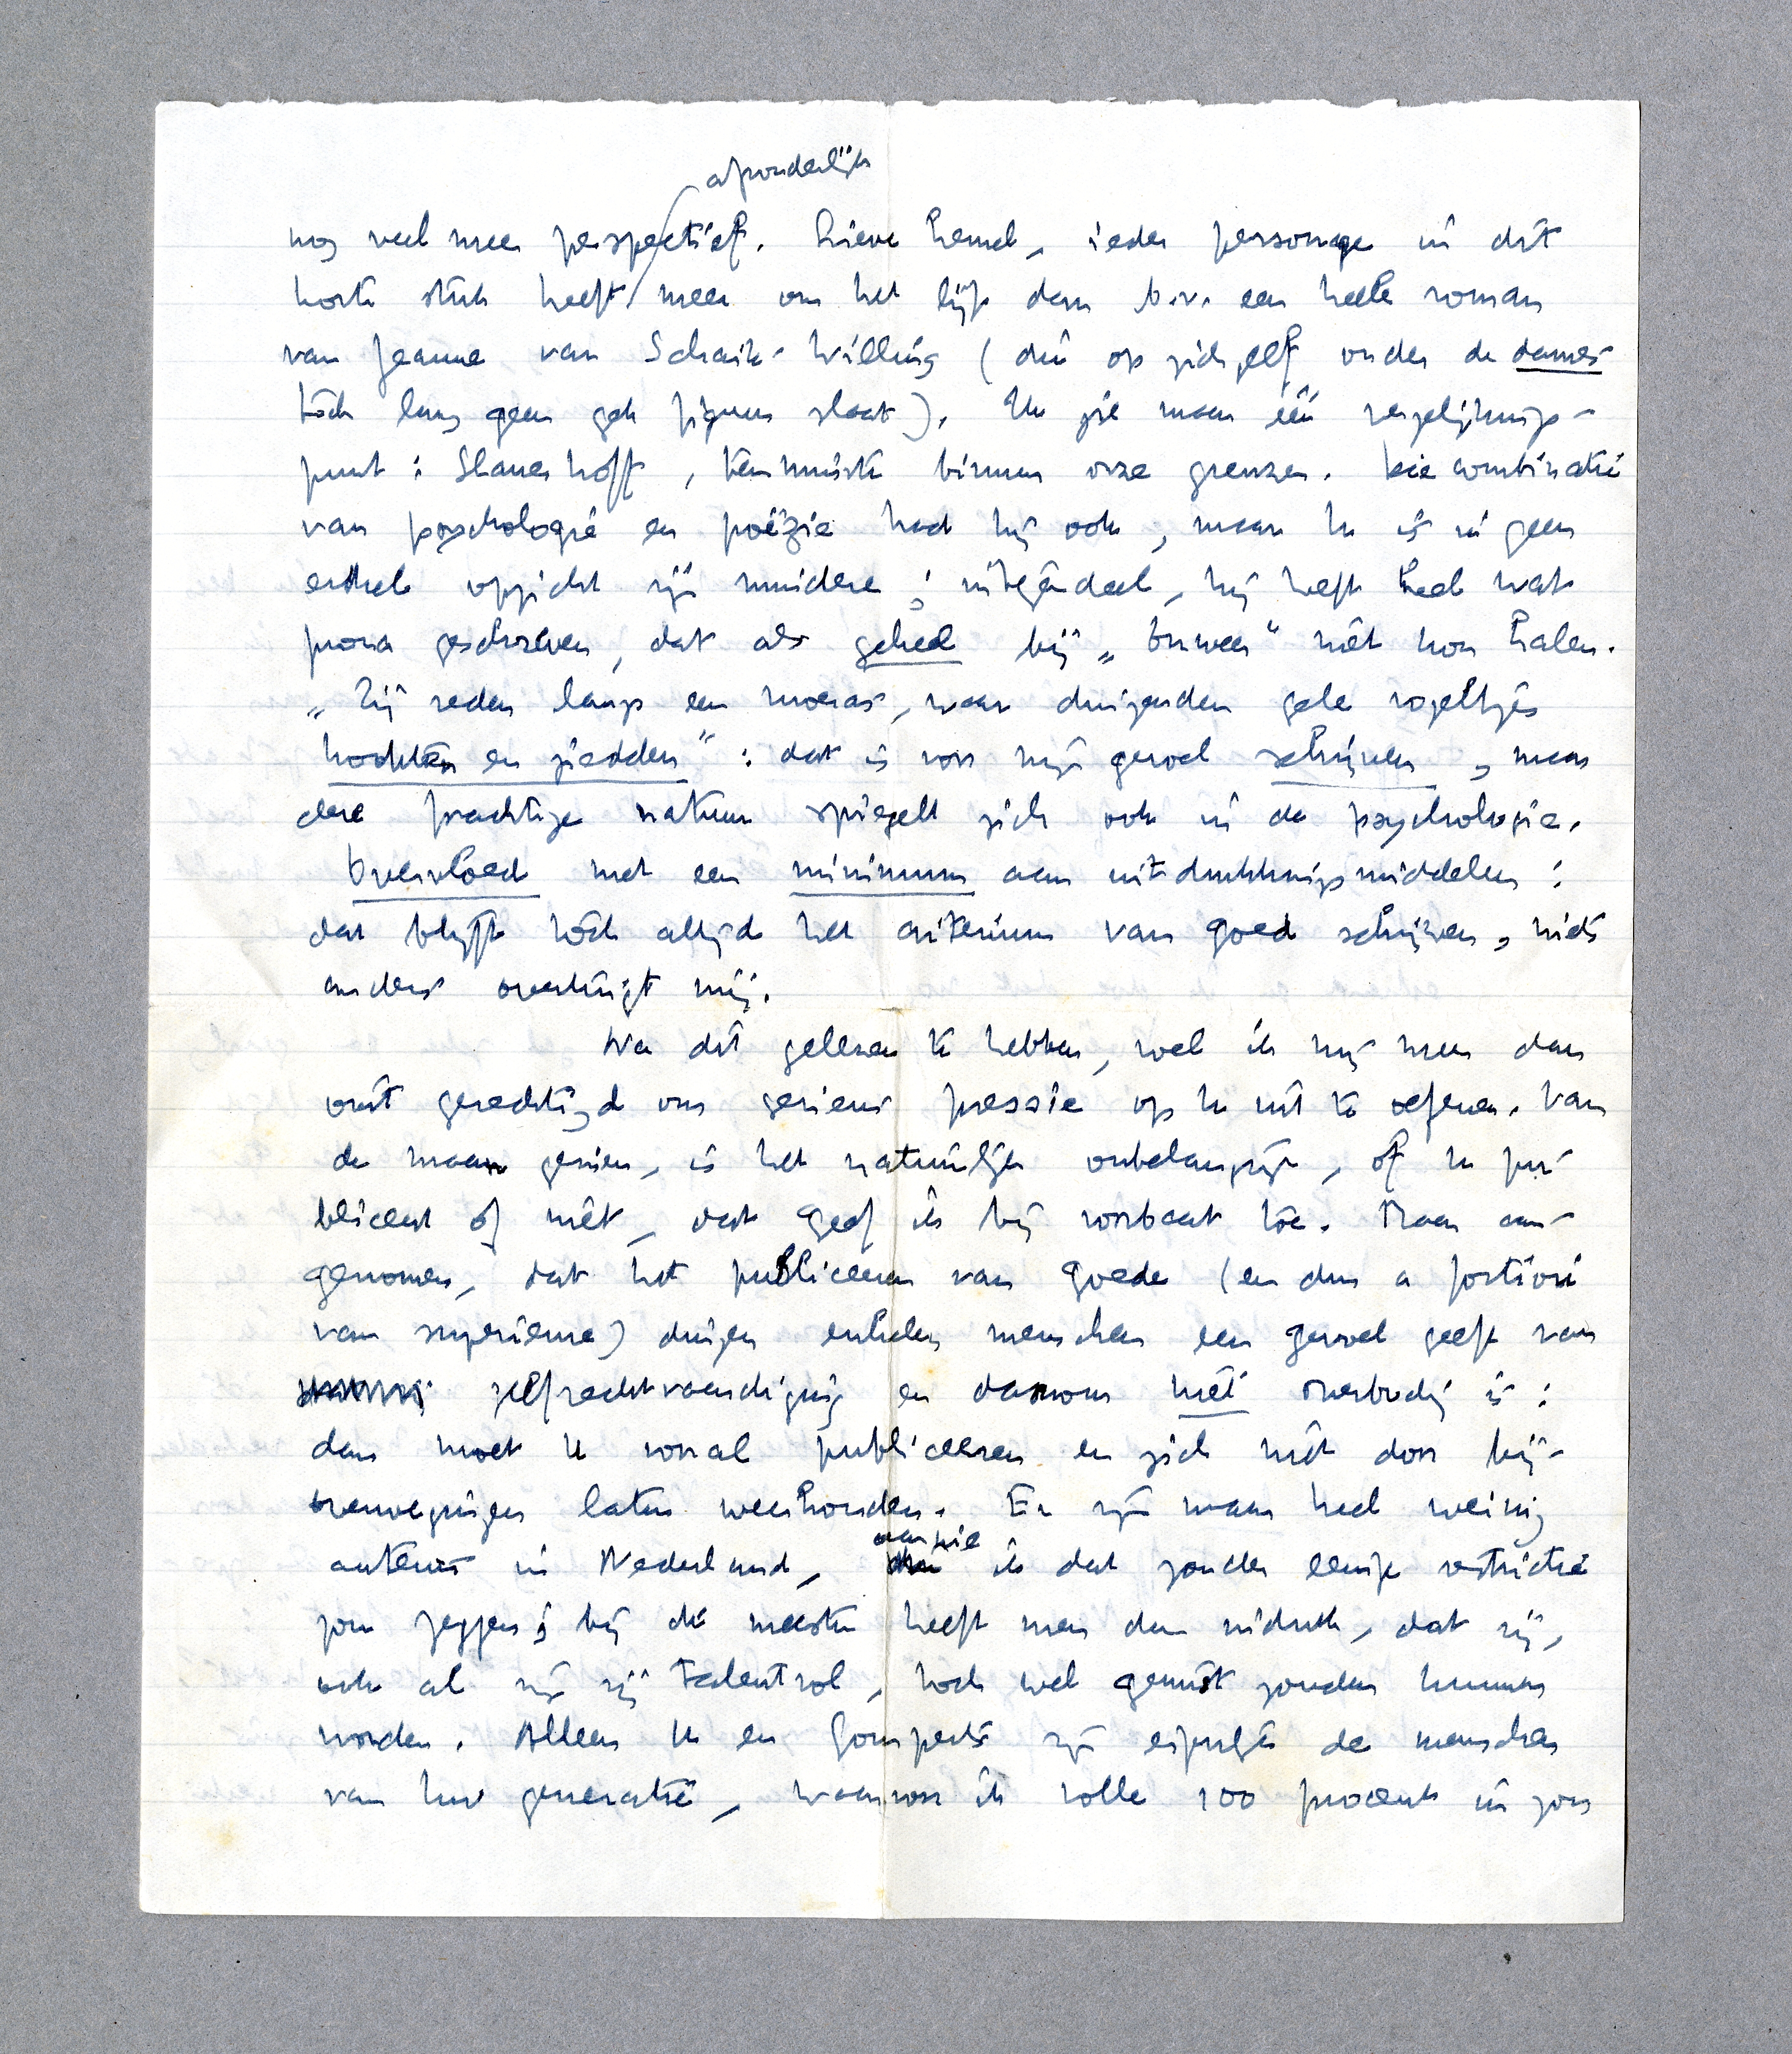 afzonderlijk
nog veel meer perspectief. Lieve hemel, ieder personage in dit
korte stuk heeft meer om het lijf dan b.v. een heele roman
van Jeanne van Schaik-Willing (die op zichzelf onder de dames
tòch lang geen gek figuur slaat). Ik zie maar één vergelijkings-
punt: Slauerhoff, tenminste binnen onze grenzen. Die combinatie
van psychologie en poëzie had hij ook, maar U is in geen
enkel opzicht zijn mindere; integendeel, hij heeft heel wat
proza geschreven, dat als geheel bij „ " niet kon halen.
„Zij reden langs een moeras, waar duizenden gele vogeltjes
kookten en ziedden": dat is voor mijn gevoel schrijven, maar
deze prachtige natuur spiegelt zich ook in de psychologie.
Overvloed met een minimum aan uitdrukkingsmiddelen:
dat blijft tòch altijd het criterium van goed schrijven, niets
anders overtuigt mij.
Na dit gelezen te hebben, voel ik mij meer dan
ooit gerechtigd om serieus pressie op U uit te oefenen. Van
de maan gezien, is het natuurlijk onbelangrijk, òf U pu-
bliceert of niet, dat geef ik bij voorbaat toe. Maar aan-
genomen, dat het publiceeren van goede (en dus a fortiori
van superieure) dingen enkelen menschen een gevoel geeft van
zelfrechtvaardiging en daarom niet overbodig is:
dan moet U vooral publiceeren en zich niet door bij-
overwegingen laten weerhouden. Er zijn maar heel weinig
auteurs in Nederland, aan wie ik dat zonder eenige restrictie
zou zeggen; bij de meesten heeft men den indruk, dat zij,
ook al zijn zij talentvol, toch wel gemist zouden kunnen
worden. Alleen U en Gomperts zijn eigenlijk de menschen
van Uw generatie, waarvoor ik volle 100 procent in zou